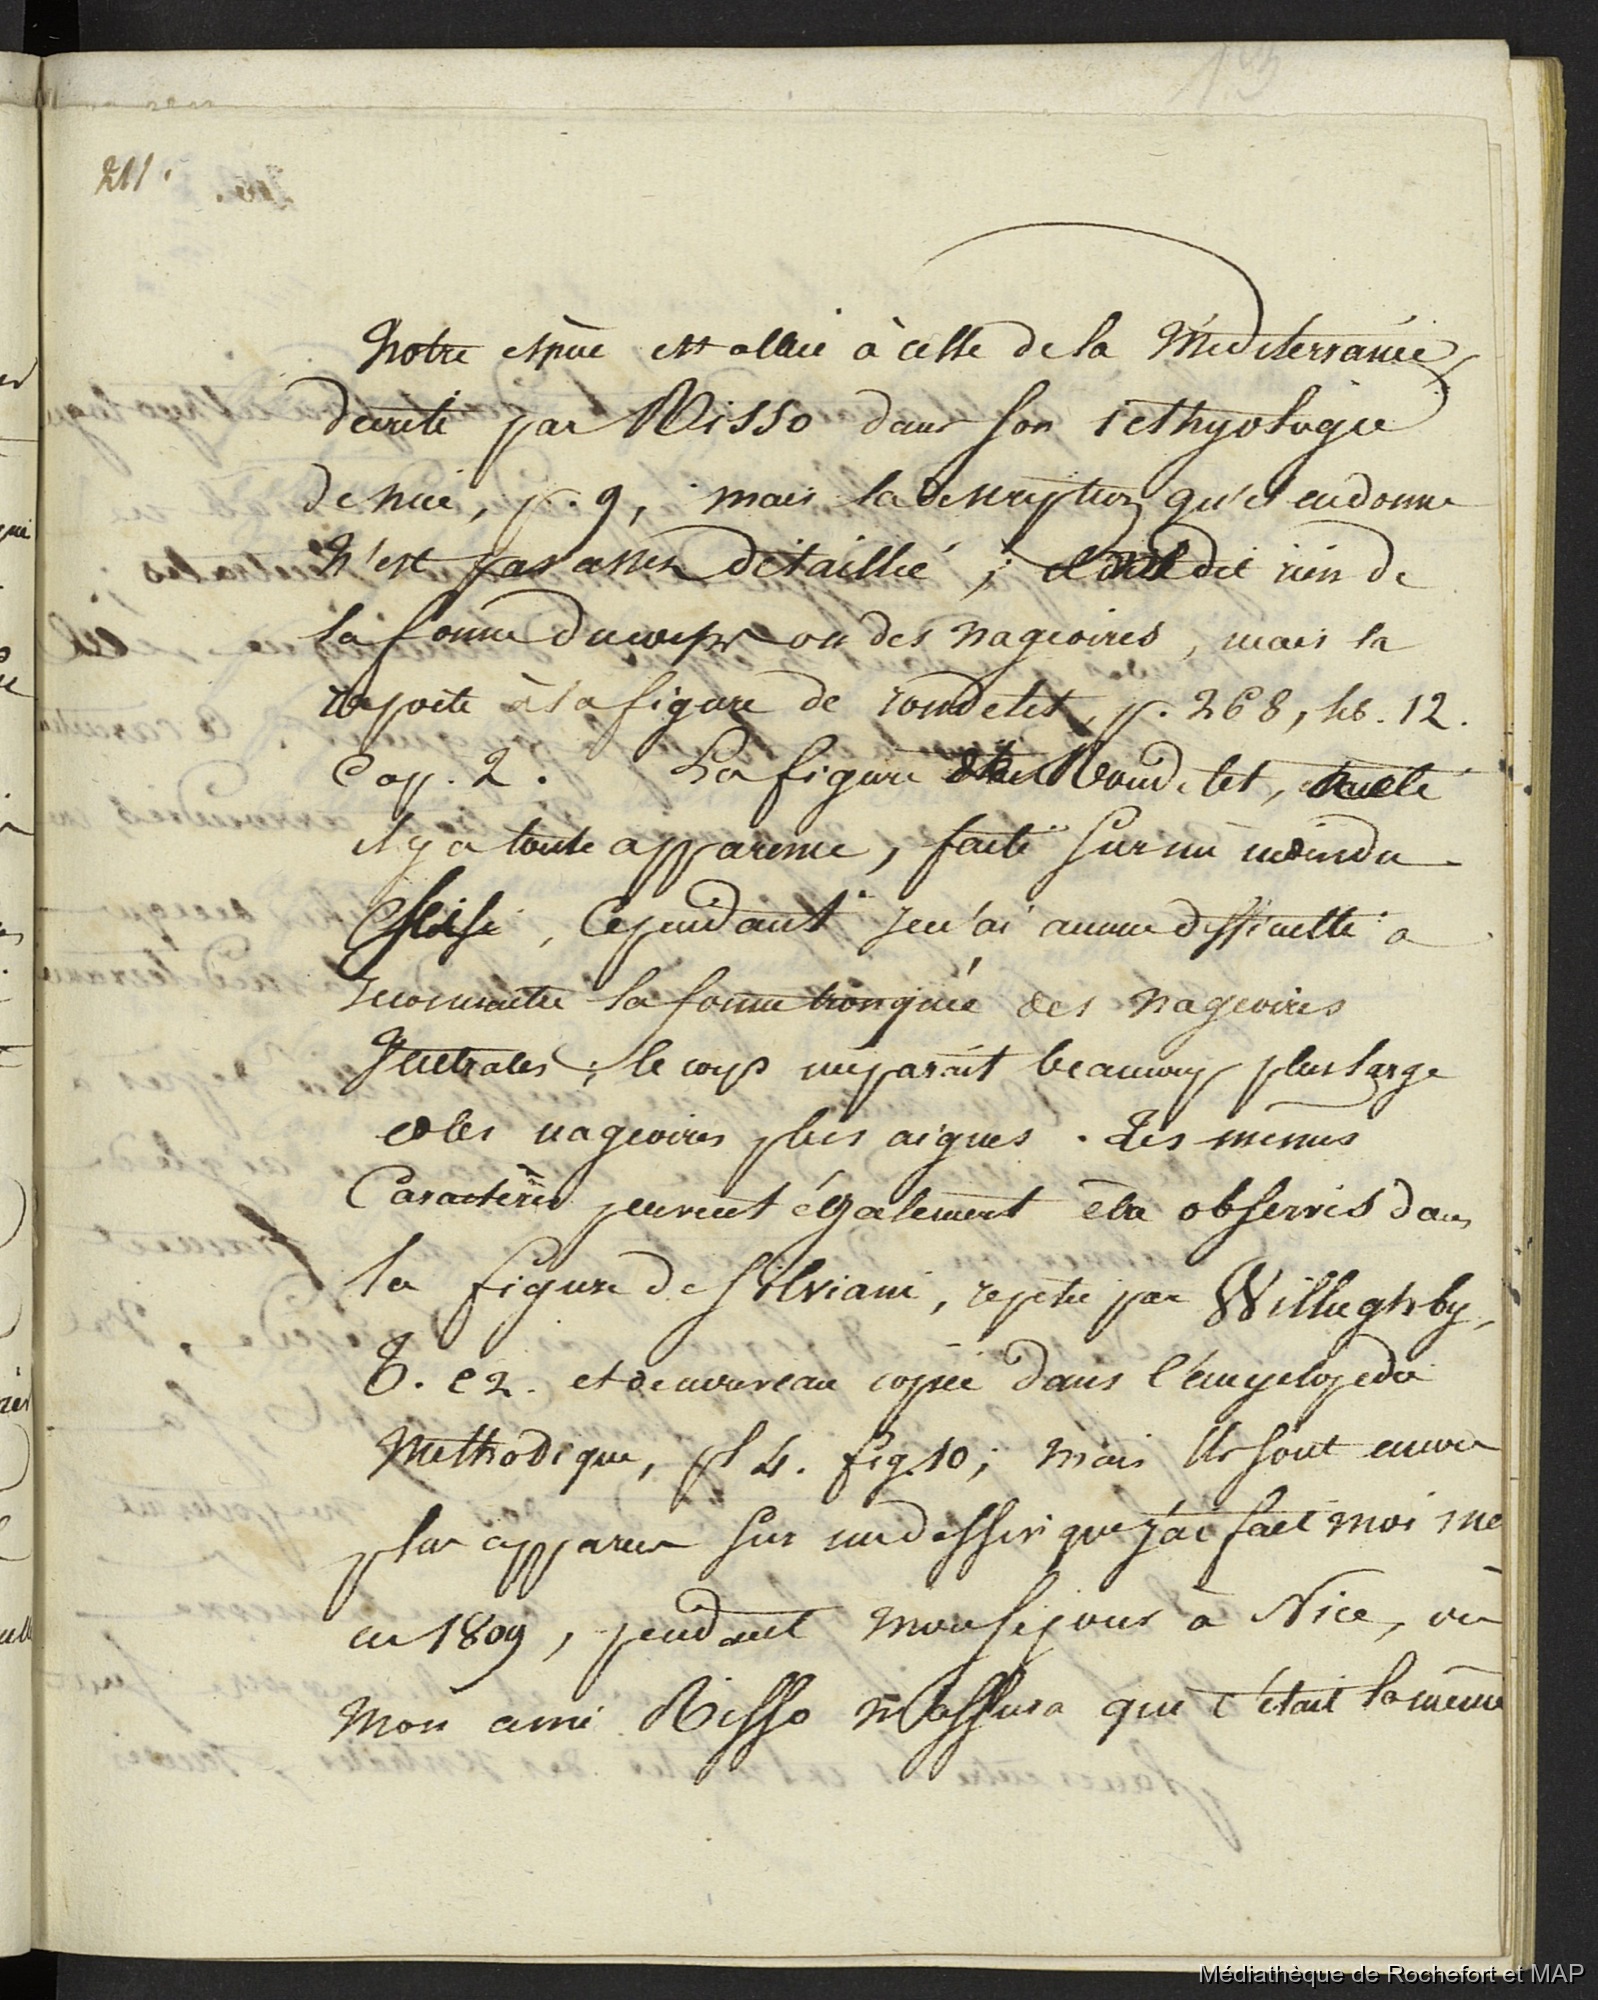 211.
Notre espèce est alliée à celle de la Méditerranée
decrite par Risso dans son icthyologie
de nice, p. 9, mais la description qu'il en donne
N'est pas assez détaillée ; il dit rien de
la forme du corps ou des nageoires, mais la
raporte à la figure de rondelet, p. 268, lib. 12.
Cap. 2. La figure de Rondelet,
il y a toute apparence, faite sur un individu
, Cependant je n'ai aucune difficulté a
reconnaitre la forme tronquée des nageoires
Ventrales ; le corps me parait beaucoup plus large
et les nageoires plus aigues. Les memes
Caractères peuvent également être observés dans
la figure de Silviani, repetée par Willughby,
T. e2. et de nouveau copiée dans l'encyclopedie
Methodique, pl 4. fig. 10; mais ils sont encore
plus apparens sur un dessin que j'ai fait moi me
en 1809, pendant mon sejour à Nice, où
Mon ami Risso m'assura que c'était la même
Médiathèque de Rochefort et MAP